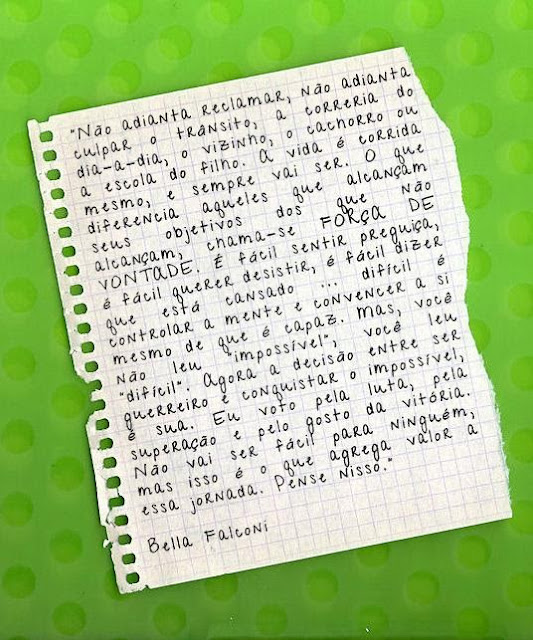 "Não adianta reclamar, não adianta
culpar o trânsito, a correria do
dia-a-dia, o vizinho, o cachorro ou
a escola do filho. A vida é corrida
mesmo, e sempre vai ser. O que
diferencia aqueles que alcançam
seus objetivos dos que não
alcançam, chama-se FORÇA DE
VONTADE. É fácil sentir preguiça,
é fácil querer desistir, é fácil dizer
que está cansado ... difícil é
controlar a mente e convencer a si
mesmo de que é capaz. Mas, você
não leu "impossível", você leu
"difícil". Agora a decisão entre ser
guerreiro e conquistar o impossível,
é sua. Eu voto pela luta, pela
superação e pelo gosto da vitória.
Não vai ser fácil para ninguém,
mas isso é o que agrega valor a
essa jornada. Pense nisso."
Bella Falconi